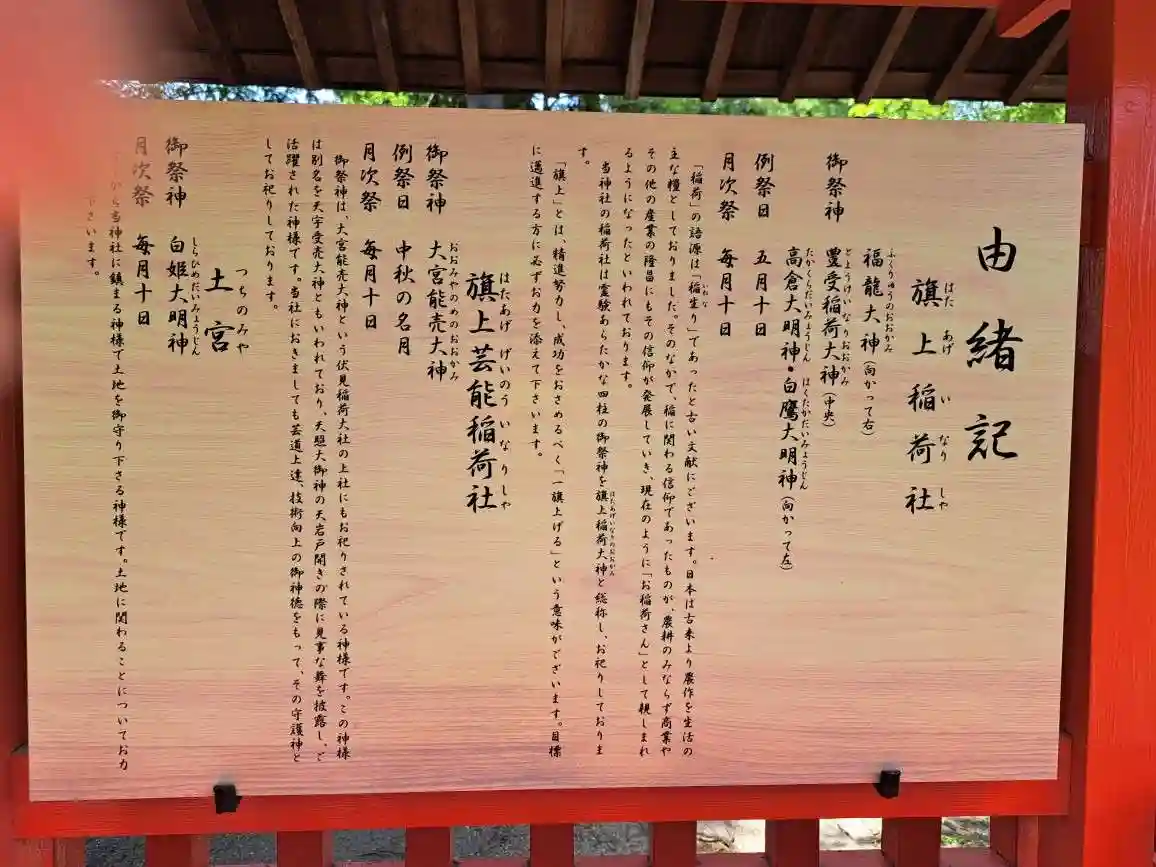 由緒記
旗上稲荷社
はたあげいなりしや
御祭神
福龍大神(向かって右)
ふくりゅうのおおかみ
豊受稲荷大神(中央)
とようけいなりおおかみ
高倉大明神・白鷹大明神(向かって左)
たかくらだいみょうじん はくたかだいみょうじん
例祭日 五月十日
月次祭 毎月十日
「稲荷」の語源は「稲生り」であったと古い文献にございます。日本は古来より農作を生活の
いねな
主な糧としておりました。そのなかで、稲に関わる信仰であったものが、農耕のみならず商業や
その他の産業の隆昌にもその信仰が発展していき、現在のように「お稲荷さん」として親しまれ
るようになったといわれております。
当神社の稲荷社は霊験あらたかな四柱の御祭神を旗上稲荷大神と総称し、お祀りしておりま
はたあげいなりのおおかみ
す。
「旗上」とは、精進努力し、成功をおさめるべく「一旗上げる」という意味がございます。目標
に邁進する方に必ずお力を添えて下さいます。
旗上芸能稲荷社
はたあげ げいのう いなりしゃ
御祭神 大宮能売大神
おおみやのめのおおかみ
例祭日 中秋の名月
月次祭 毎月十日
御祭神は、大宮能売大神という伏見稲荷大社の上社にもお祀りされている神様です。この神様
は別名を天宇受売大神ともいわれており、天照大御神の天岩戸開きの際に見事な舞を披露し、ご
活躍された神様です。当社におきましても芸道上達、技術向上の御神徳をもって、その守護神と
してお祀りしております。
土宮
つちのみや
御祭神 白姫大明神
しらひめだいみょうじん
月次祭 毎月十日
から当神社に鎮まる神様で土地を御守り下さる神様です。土地に関わることについてお力
下さいます。